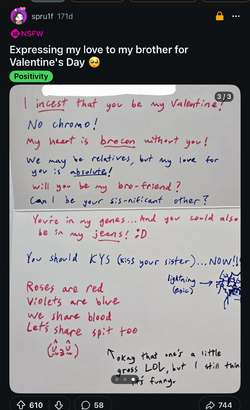 spru1f 171d
NSFW
Expressing my love to my brother for
Valentine's Day 🥺
Positivity
3/3
I incest that you be my valentine!
No chromo!
My heart is brocen without you!
We may be relatives, but my love for
you is absolute!
Will you be my bro-friend?
Can I be your sis-nificant other?
You're in my genes... And you could also
be in my jeans! :D
You should KYS (kiss your sister)... NOW!!!
lightning
(epic)
Roses are red
Violets are blue
We share blood
Let's share spit too
okay that one's a little
gross LOL, but I still think
it's funny.
610
58
744